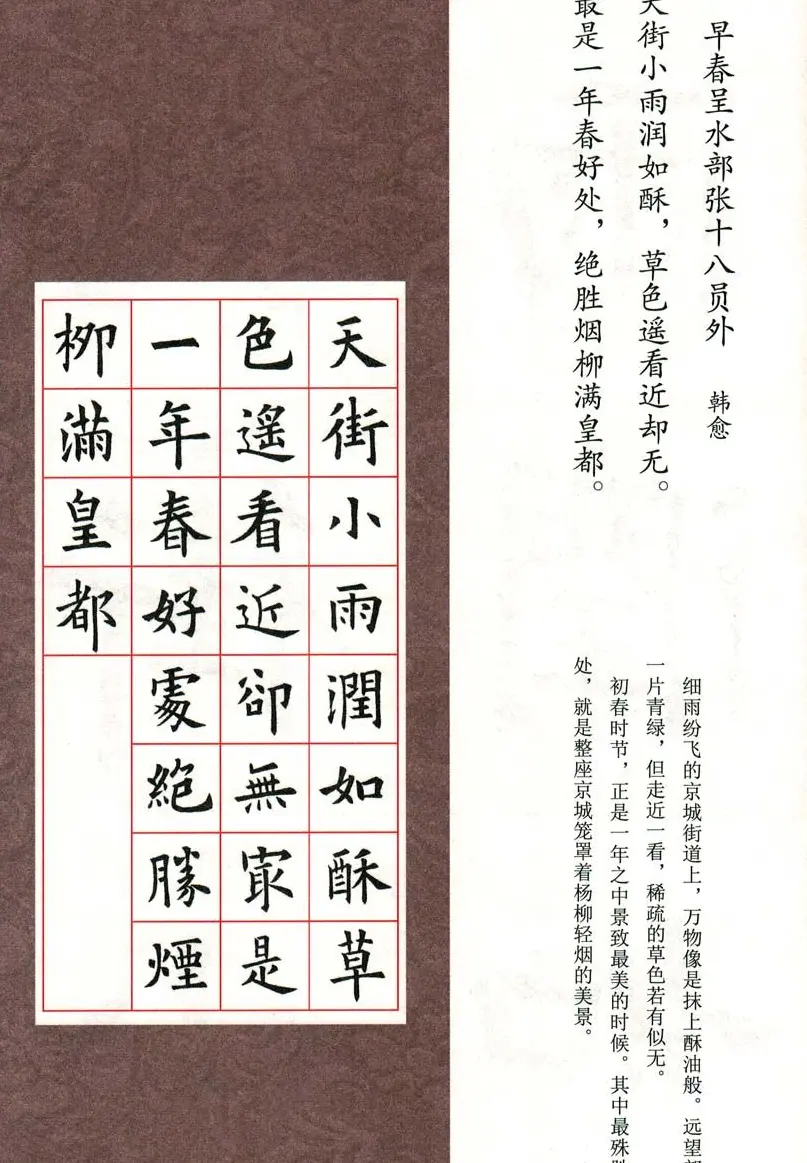 早春呈水部张十八员外 韩愈
天街小雨润如酥，草色遥看近却无。
最是一年春好处，绝胜烟柳满皇都。
细雨纷飞的京城街道上，万物像是抹上酥油般。远望
一片青绿，但走近一看，稀疏的草色若有似无。
初春时节，正是一年之中景致最美的时候。其中最殊
处，就是整座京城笼罩着杨柳轻烟的美景。
天街小雨潤如酥草
色遥看近卻無冣是
一年春好處絶勝煙
柳滿皇都